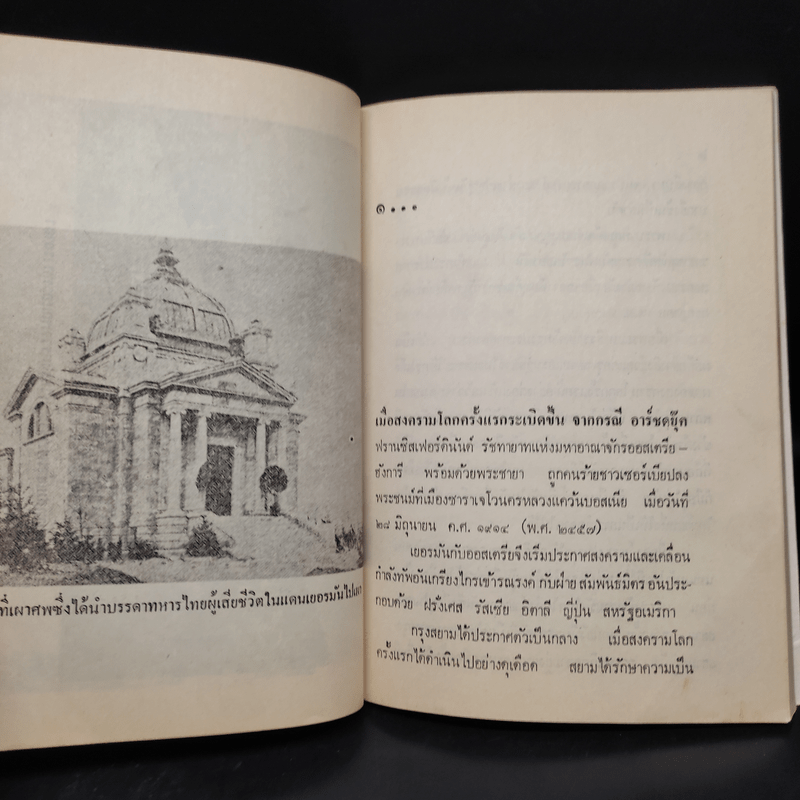 ที่เผาศพซึ่งได้นำบรรดาทหารไทยผู้เสียชีวิตในแดนเยอรมันไปเผา
๑...
เมื่อสงครามโลกครั้งแรกระเบิดขึ้น จากกรณี อาร์ชดยุ๊ค
ฟรานซิสเฟอร์ดินันด์ รัชทายาทแห่งมหาอาณาจักรออสเตรีย-
ฮังการี พร้อมด้วยพระชายา ถูกคนร้ายชาวเซอร์เบียปลง
พระชนม์ที่เมืองซาราเจโวนครหลวงแคว้นบอสเนีย เมื่อวันที่
๒๘ มิถุนายน ค.ศ. ๑๙๑๔ (พ.ศ. ๒๔๕๗)
เยอรมันกับออสเตรียจึงเริ่มประกาศสงครามและเคลื่อน
กำลังทัพอันเกรียงไกรเข้ารณรงค์ กับฝ่ายสัมพันธ์มิตร อันประ-
กอบด้วย ฝรั่งเศส รัสเซีย อิตาลี ญี่ปุ่น สหรัฐอเมริกา
กรุงสยามได้ประกาศตัวเป็นกลาง เมื่อสงครามโลก
ครั้งแรกได้ดำเนินไปอย่างดุเดือด สยามได้รักษาความเป็น